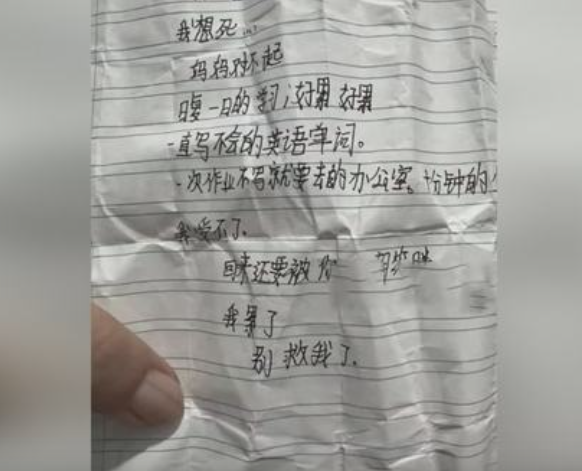 我想死...
妈妈对不起
日复一日的学习,好累 好累
一直写不会的英语单词。
一次作业不写就要去的办公室。十分钟的
我受不了.
回来还要被你
我累了
别救我了.